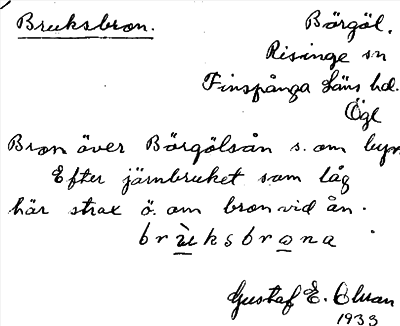 Bruksbron.
Börgöl.
Risinge sn
Finspånga läns hd.
Ögl
Bron över Börgölsån s. om byn
Efter järnbruket som låg
här strax ö. om bron vid ån.
brùksbrona
Gustaf E. Olsson
1933